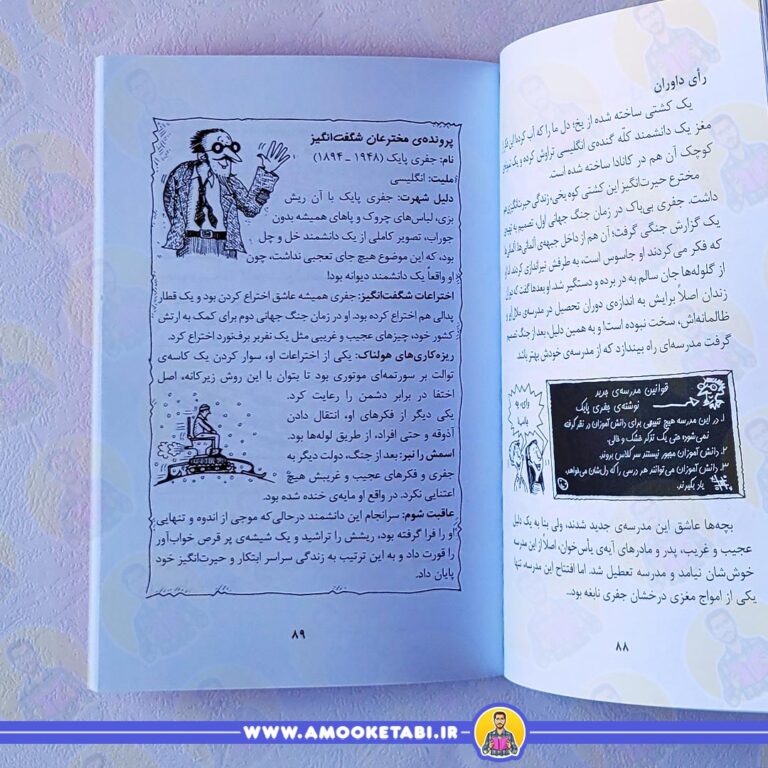 رأی داوران
یک کشتی ساخته شده از یخ، دل ما را که آب کرد! این فکر
مغز یک دانشمند کله گنده‌ی انگلیسی تراوش کرده و یک
کوچک آن هم در کانادا ساخته شده است.
مخترع حیرت‌انگیز این کشتی کوه یخی، زندگی حیرت‌انگیزی هم
داشت. جفری بی‌باک در زمان جنگ جهانی اول، تصمیم به
یک گزارش جنگی گرفت؛ آن هم از داخل جبهه‌ی آلمانی‌ها!
که فکر می‌کردند او جاسوس است، به طرفش تیراندازی کردند، اما او
از گلوله‌ها جان سالم به در برده و دستگیر شد. او بعدها گفت که دوران
زندان اصلاً برایش به اندازه‌ی دوران تحصیل در مدرسه‌ی
ظالمانه‌اش، سخت نبوده است! و به همین دلیل، بعد از جنگ تصمیم
گرفت مدرسه‌ای راه بیندازد که از مدرسه‌ی خودش بهتر باشد.
قوانین مدرسه‌ی جدید
نوشته‌ی جفری پایک
۱. در این مدرسه هیچ تنبیهی برای دانش‌آموزان در نظر گرفته
نمی‌شود؛ حتی یک تذکر خشک و خالی.
۲. دانش‌آموزان مجبور نیستند سر کلاس بروند.
۳. دانش‌آموزان می‌توانند هر درسی را که دلشان می‌خواهد،
یاد بگیرند.
بچه‌ها عاشق این مدرسه‌ی جدید شدند، ولی بنا به یک دلیل
عجیب و غریب، پدر و مادرهای آیه‌ی یأس‌خوان، اصلاً از این مدرسه
خوش‌شان نیامد و مدرسه تعطیل شد. اما افتتاح این مدرسه، تنها
یکی از امواج مغزی درخشان جفری نابغه بود...
۸۸
پرونده‌ی مخترعان شگفت‌انگیز
نام: جفری پایک (۱۹۴۸ ـ ۱۸۹۴)
ملیت: انگلیسی
دلیل شهرت: جفری پایک با آن ریش
بزی، لباس‌های چروک و پاهای همیشه بدون
جوراب، تصویر کاملی از یک دانشمند خل و چل
بود، که این موضوع هیچ جای تعجبی نداشت، چون
او واقعاً یک دانشمند دیوانه بود!
اختراعات شگفت‌انگیز: جفری همیشه عاشق اختراع کردن بود و یک قطار
پدالی هم اختراع کرده بود. او در زمان جنگ جهانی دوم برای کمک به ارتش
کشور خود، چیزهای عجیب و غریبی مثل یک نفربر برف‌نورد اختراع کرد.
ریزه‌کاری‌های هولناک: یکی از اختراعات او، سوار کردن یک کاسه‌ی
توالت بر سورتمه‌ای موتوری بود تا بتوان با این روش زیرکانه، اصل
اختفا در برابر دشمن را رعایت کرد.
یکی دیگر از فکرهای او، انتقال دادن
آذوقه و حتی افراد، از طریق لوله‌ها بود.
اسمش را نبر: بعد از جنگ، دولت دیگر به
جفری و فکرهای عجیب و غریبش هیچ
اعتنایی نکرد. در واقع او مایه‌ی خنده شده بود.
عاقبت شوم: سرانجام این دانشمند درحالی‌که موجی از اندوه و تنهایی
او را فرا گرفته بود، ریشش را تراشید و یک شیشه‌ی پر قرص خواب‌آور
را قورت داد و به این ترتیب به زندگی سراسر ابتکار و حیرت‌انگیز خود
پایان داد.
۸۹
WWW.AMOOKETABI.IR